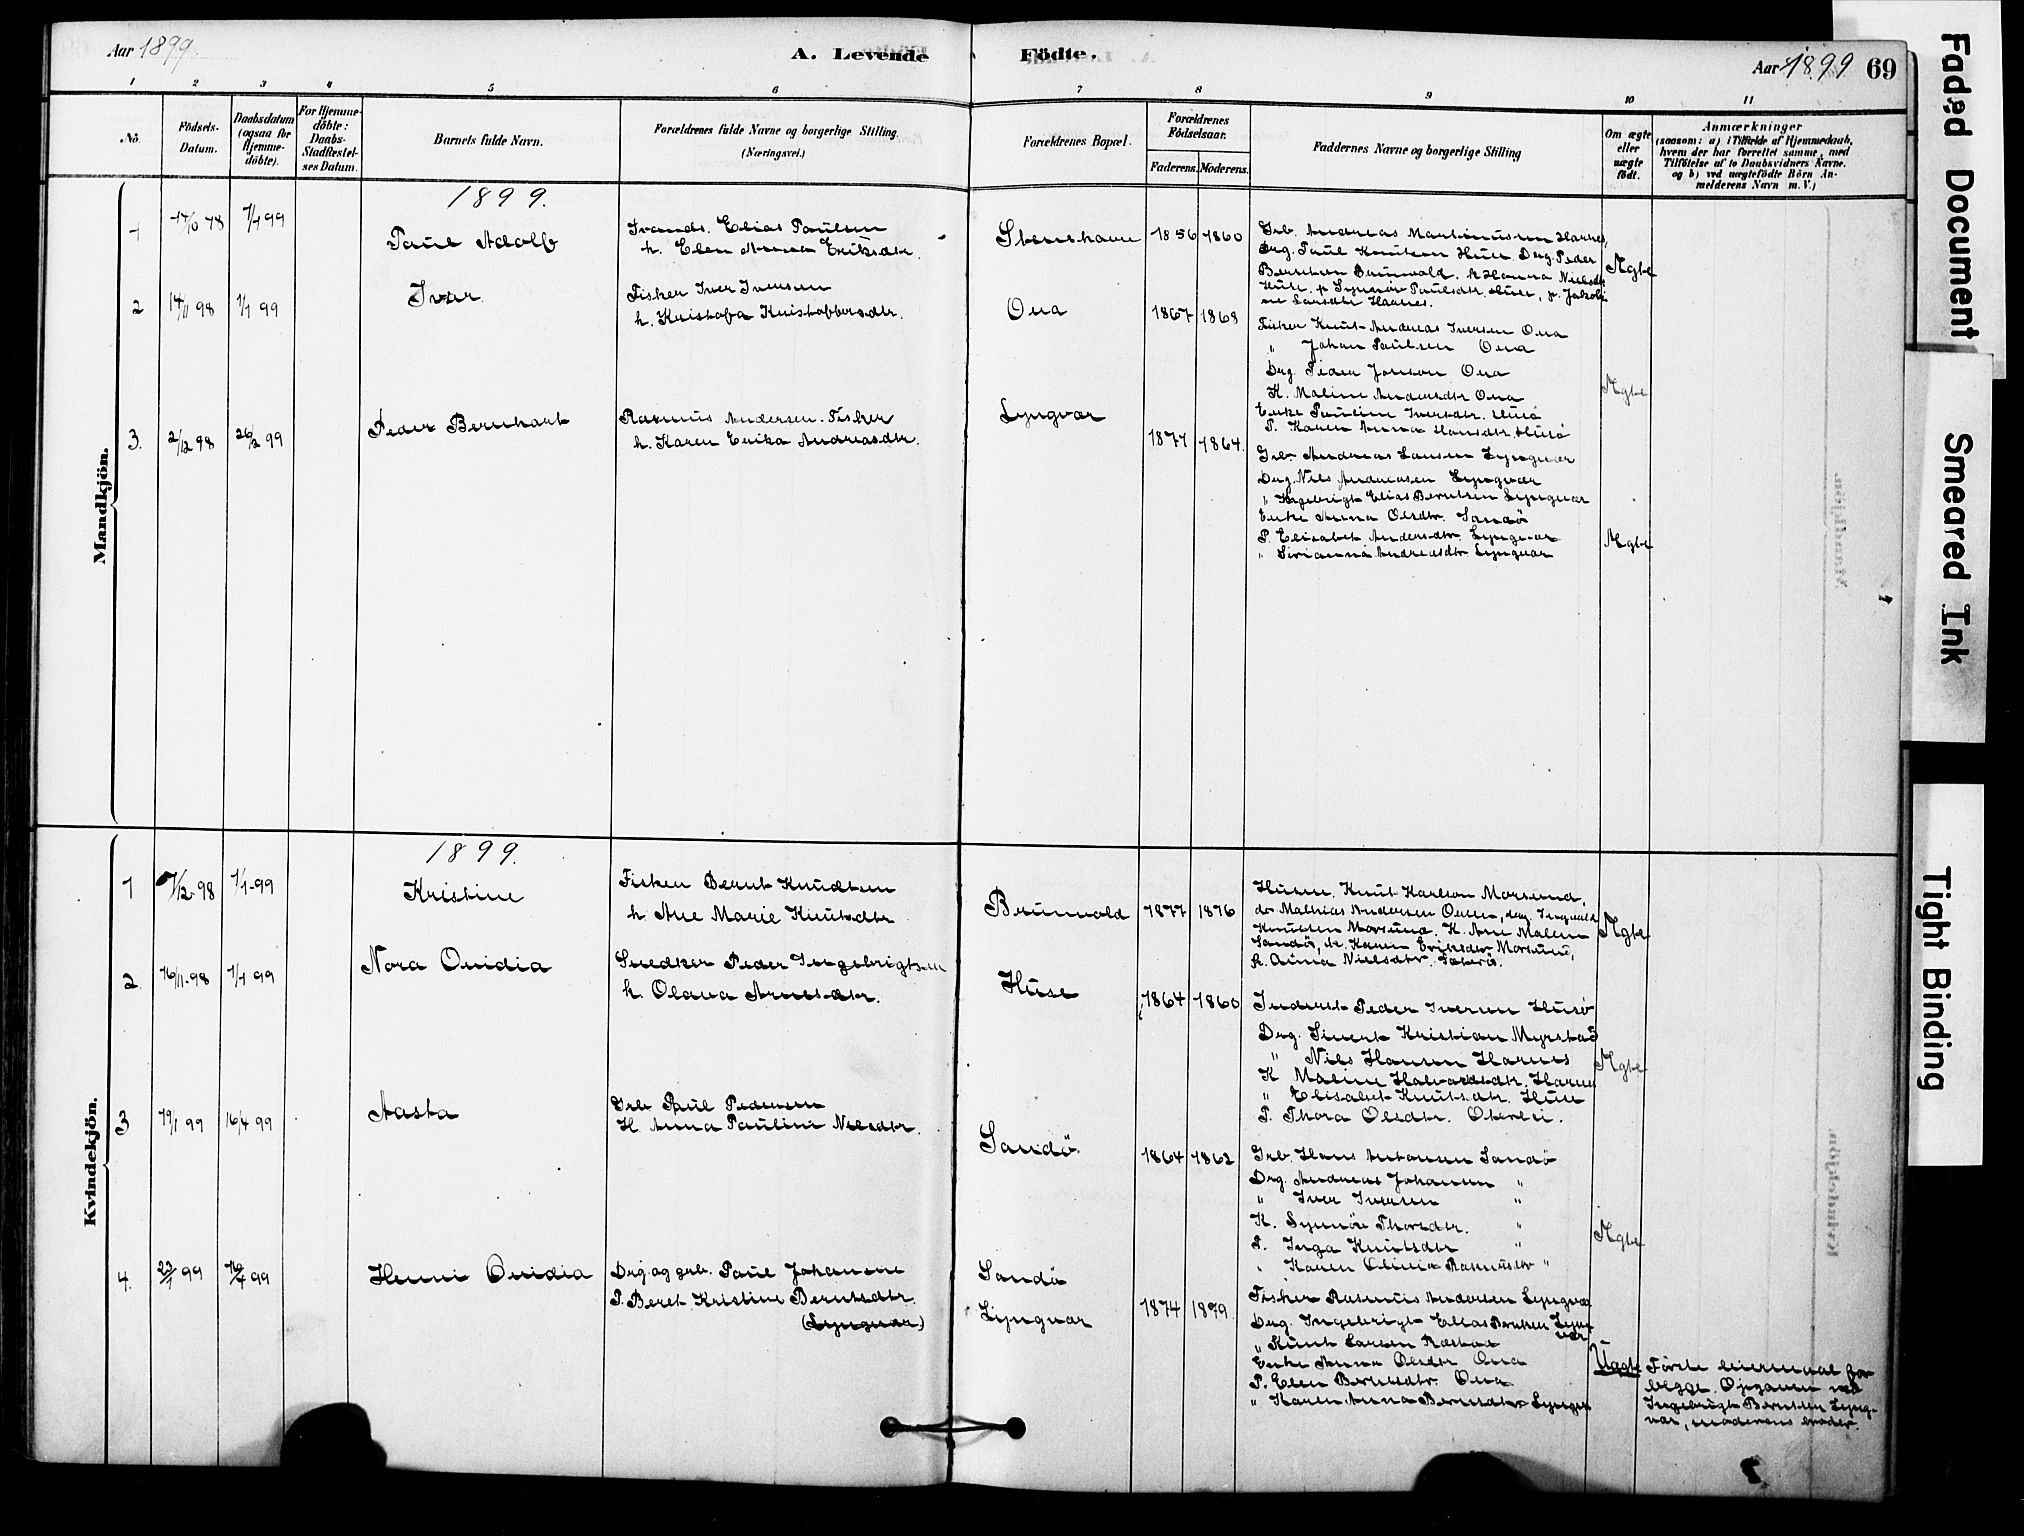 Aar 1899.
A. Levende Födte.
Aar 1899
69
1 2 3 4 5 6 7 8 9 10 11
No.
Födsels-
Datum.
Daabsdatum
(ogsaa for
Hjemme-
döbte).
For Hjemme-
döbte:
Daabs-
Stadfæstel-
ses Datum.
Barnets fulde Navn.
Forældrenes fulde Navne og borgerlige Stilling.
(Næringsvei.)
Forældrenes Bopæl.
Forældrenes
Födselsaar.
Faderens. Moderens.
Faddernes Navne og borgerlige Stilling
Om ægte
eller
uægte
födt.
Anmærkninger
(saasom: a) i Tilfælde af Hjemmedaab,
hvem der har forrettet samme, med
Tilföielse af to Daabsvidners Navne.
og b) ved uægtefödte Börn An-
melderens Navn m. V.)
Mandkjön.
1899.
1
1/1 99
Paul Adolf
Elias Paulsen
h. Elen Anna Eriksdtr.
Stenshavn
1856 1860
Grb. Andreas Martinussen Harnes,
Drg. Paul Knutsen Huse Drg. Peder
Berntsen Brunvold. K Hanna Nielsdtr
Huse. p Synnöv Paulsdtr. Huse, p. Jakobi-
ne Larsdtr Harnes.
Ægte
2
14/11 98
1/1 99
Iver.
Fisker Iver Iversen
h. Kristofa Kristoffersdtr.
Ona
1867 1868
Fisker Knut Andreas Iversen Ona
" Johan Paulsen Ona
Drg. Peder Jonson Ona
K. Malene Andersdtr Ona
Enke Pauline Iversdtr. Husö
P. Karen Anna Hansdtr. Husö
Ægte
3.
2/12 98
26/2 99
Peder Bernhart
Rasmus Andersen. Fisker
h. Karen Erika Andreasdtr.
Lyngvær
1877 1864.
Grb. Andreas Larsen Lyngvær
Drg. Niels Andreasen Lyngvær
" Ingebrigt Elias Berntsen Lyngvær
Enke Anna Olsdtr. Sandö
P. Elisabet Andersdtr. Lyngvær
" Sirianna Andreasdtr Lyngvær
Ægte
Kvindekjön.
1899.
1
1/1-99
Kristine
Fisker Bernt Knudtsen
h. Ane Marie Knutsdtr
Brunvold
1877 1876
Husm. Knut Karlson Morsund,
do Mathias Andersen Ouren, drg. Ingvald
Knutsen Morsund. K. Ane Malen
Sandö, k. Karen Eriksdtr Morsund,
k. Anna Nielsdtr.
Ægte
2.
16/11-98
1/1 99
Nora Ovidia
Snedker Peder Ingebrigtsen
h. Olava Arnesdtr.
Huse
1864 1860
Inderst Peder Iversen Husö
Drg. Sivert Kristian Myrstad
" Niels Hansen Harnes
K Maline Halvardsdtr. Harnes
" Elisabet Knutsdtr. Huse
P. Thora Olsdtr. Oterlei.
Ægte
3
19/1 99
16/4 99
Aasta
Grb Paul Pedersen
H. Anna Pauline Nilsdtr.
Sandö
1864 1862
Grb. Hans Antonsen Sandö
Drg. Andreas Johansen "
" Iver Iversen "
K. Synnöv Thorsdtr. "
P. Inga Knutsdtr "
" Karen Olivia Rasmusdtr "
Ægte
4.
22/1 99
16/4 99
Henni Ovidia
Drg. og grb. Paul Johansen
P. Beret Kristine Berntsdtr.
(Lyngvær)
Sandö
Lyngvær
1874 1879
Fisker Rasmus Andersen Lyngvær
Drg. Ingebrigt Elias Berntsen Lyng
vær
" Knut Larsen Ræstad
Enke Anna Olsdtr Ona
P. Elen Berntsdtr. Ona
" Karen Anna Berntsdtr Lyngvær
Uægte
Förste leiermaal for
begge. Opgaven ved
Ingebrigt Berntsen Lyng-
vær, moderens broder.
Faded Document
Smeared Ink
Tight Binding